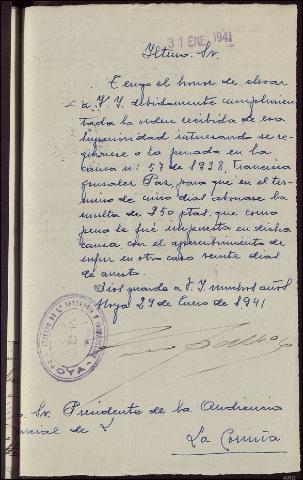 31 ENE 1941
Iltmo. Sr.
Tengo el honor de elevar
a V. I. debidamente cumplimen
tada la orden recibida de esa
superioridad interesando se re-
quiriese a la penada en la
causa nº 57 de 1938, Francisca
Gonzalez Paz, para que en el ter-
mino de cinco dias abonase la
multa de 250 ptas. que como
pena le fué impuesta en dicha
causa, con el apercibimiento de
sufrir en otro caso veinte dias
de arresto.
Dios guarde a V. I. muchos años
Noya 29 de Enero de 1941
NOYA
o. Sr. Presidente de la Audiencia
incial de
La Coruña